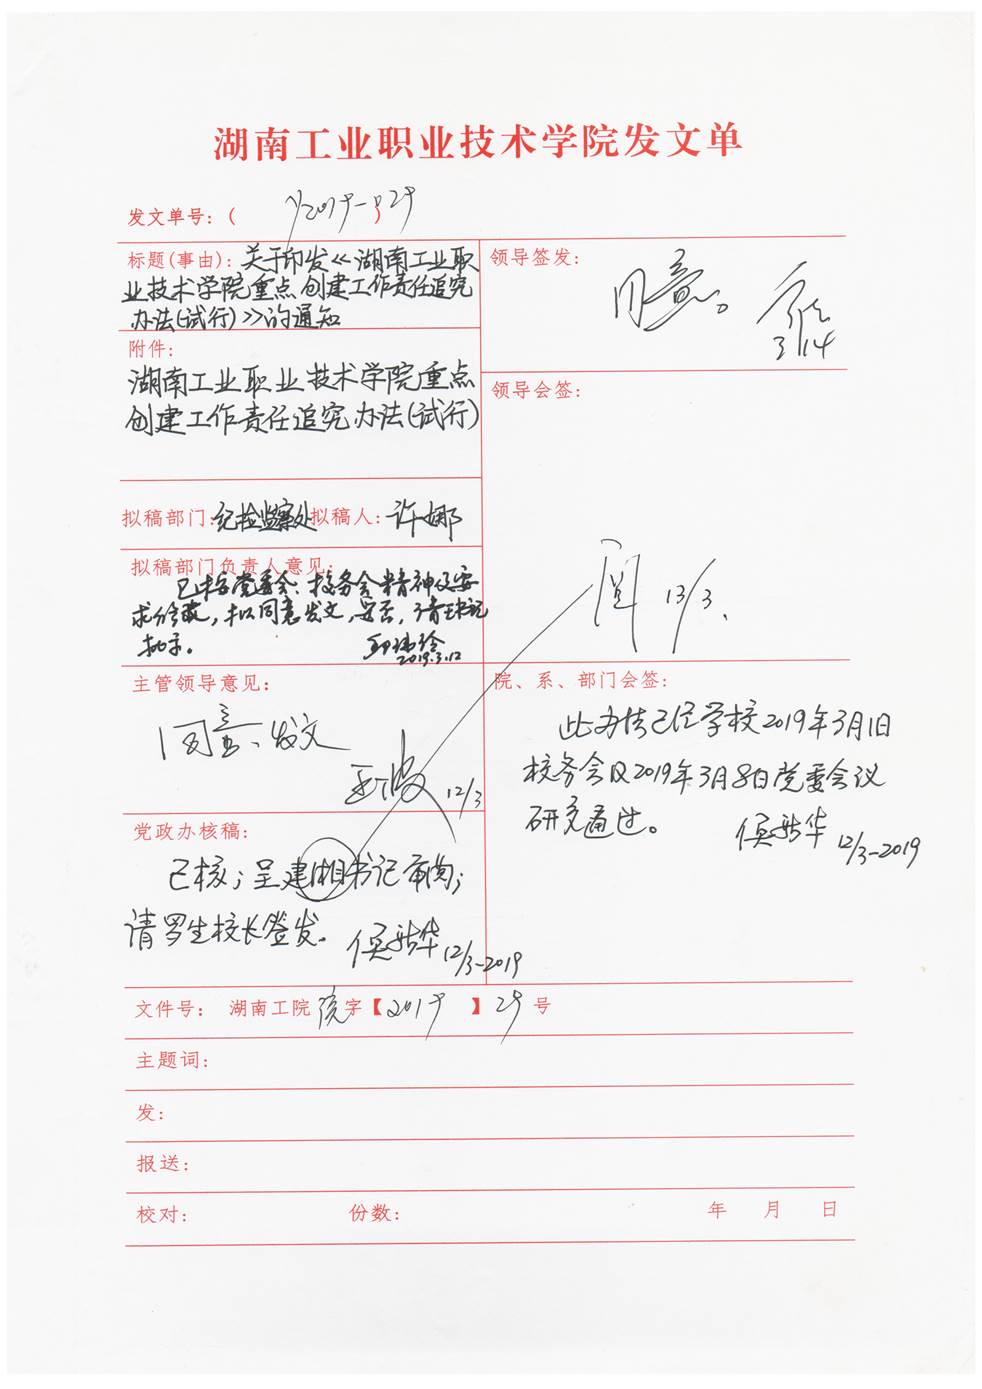 湖南工业职业技术学院发文单
发文单号：( 2019-029
标题(事由)：关于印发《湖南工业职
业技术学院重点创建工作责任追究
办法(试行)》的通知
附件：
湖南工业职业技术学院重点
创建工作责任追究办法(试行)
拟稿部门：纪检监察处 拟稿人：许娜
拟稿部门负责人意见：
已按党委会、校务会精神及要
求修改，拟同意发文，妥否，请
批示。
2019.3.12
主管领导意见：
同意、发文
12/3
党政办核稿：
已核；呈建湘书记审阅；
请罗生校长签发。
12/3-2019
领导签发：
同意。
3/14
领导会签：
阅 13/3.
院、系、部门会签：
此办法已经学校2019年3月1日
校务会及2019年3月8日党委会议
研究通过。
12/3-2019
文件号： 湖南工院 院字【2019】29号
主题词：
发：
报送：
校对： 份数： 年 月 日